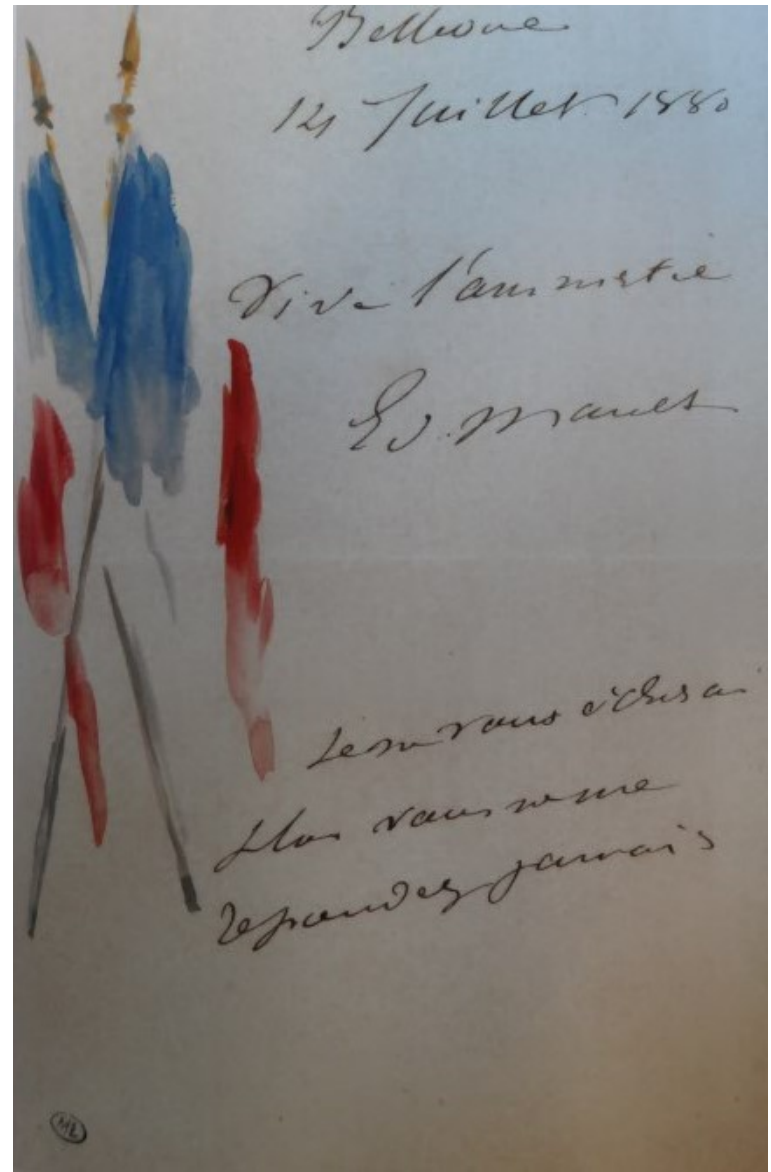 Bellevue
14 Juillet 1880
Vive l'amnistie
Ed. Manet
Je ne vous écherai
plus vous ne me
repondez jamais
ML